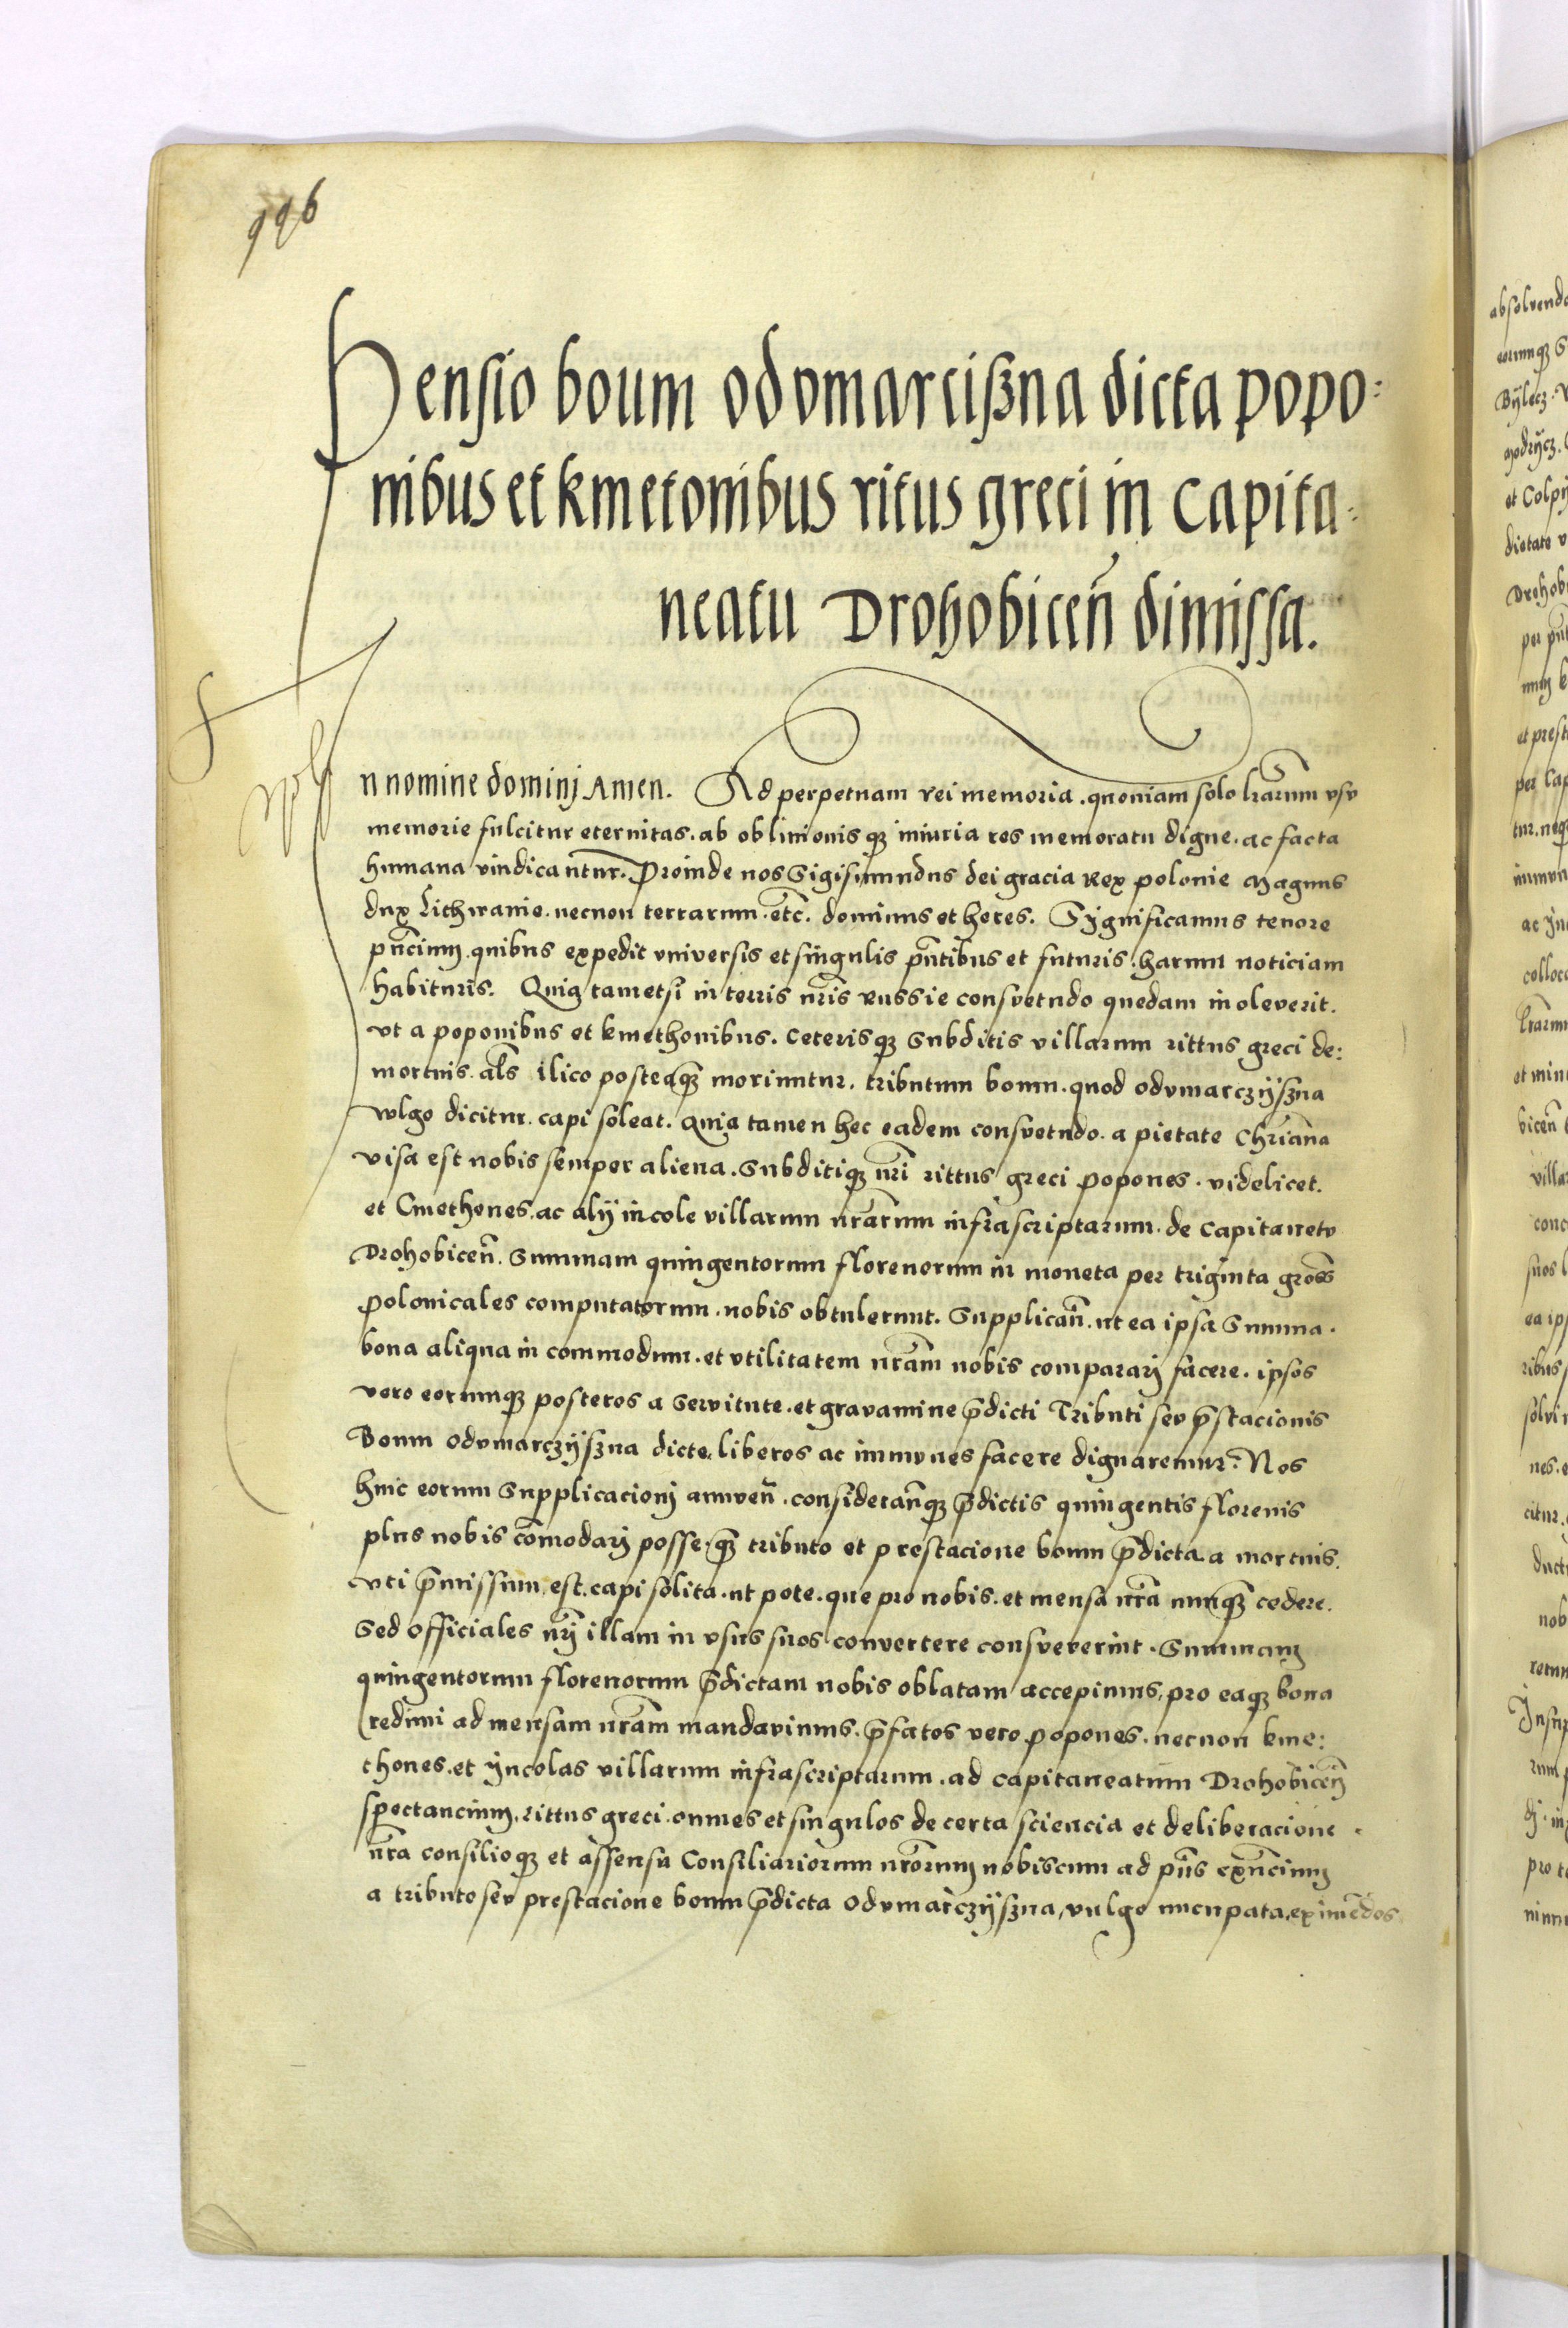 996
Pensio boum odvmarcißna dicta popo:
nibus et kmetonibus ritus greci in Capita:
neatu Drohobiceñ dimissa.
In nomine dominj Amen. Ad perpetuam rei memoria. quoniam solo lrarum vsv
memorie fulcitur eternitas. ab oblinionis qz iniuria res memoratu digne. ac facta
humana vindicantur. Proinde nos Sigismundus dei gracia Rex polonie Magnus
dux Lithwanie. necnon terrarum. etc̃. dominus et heres. Significamus tenore
pñcium. quibus expedit vniversis et singulis pñtibus et futuris. harum noticiam
habituris. Quia tametsi in terris nr̃is Russie consvetudo quedam inoleverit.
vt a poponibus et kmethonibus. Ceterisqz Subditis villarum rittus greci de:
mortuis. als̃ ilico posteaqz̃ moriuntur. tributum boum. quod odvmarczyszna
vulgo dicitur. capi soleat. Quia tamen hec eadem consvetudo. a pietate Chr̃iana
visa est nobis semper aliena. Subditiqz nr̃i rittus greci popones. videlicet.
et Cmethones. ac alij incole villarum nr̃arum infrascriptarum. de Capitanetv
Drohobiceñ. Summam quingentorum florenorum in moneta per triginta gross̃
polonicales computatorum. nobis obtulerunt. Supplicañ. ut ea ipsa Summa.
bona aliqua in commodum. et vtilitatem nr̃am nobis comparari facere. ipsos
vero eorumqz posteros a Servitute. et gravamine p̃dicti Tributi sev p̃stacionis
Boum odvmarczyszna dicte. liberos ac immvnes facere dignaremur. Nos
huic eorum Supplicacionj annveñ. considerañqz p̃dictis quingentis florenis
plus nobis cõmodarj posse. qz̃ tributo et prestacione boum p̃dicta a mortuis.
vti p̃missum est. capi solita. ut pote. que pro nobis. et mensa nr̃a nunqz̃ cedere.
Sed officiales nr̃j illam in vsus suos convertere consveverint. Summam
quingentorum florenorum p̃dictam nobis oblatam accepimus, pro eaqz bona
redimi ad mensam nr̃am mandavimus. p̃fatos vero popones. necnon kme:
thones. et yncolas villarum infrascriptarum. ad capitaneatum Drohobiceñ
spectancium. rittus greci. omnes et singulos de certa sciencia et deliberacione
nr̃a consilioqz et assensu Consiliariorum nr̃orum nobiscum ad pñs exñcium
a tributo sev prestacione boum p̃dicta Odvmarczyszna, vulgo nucupata, eximẽdos